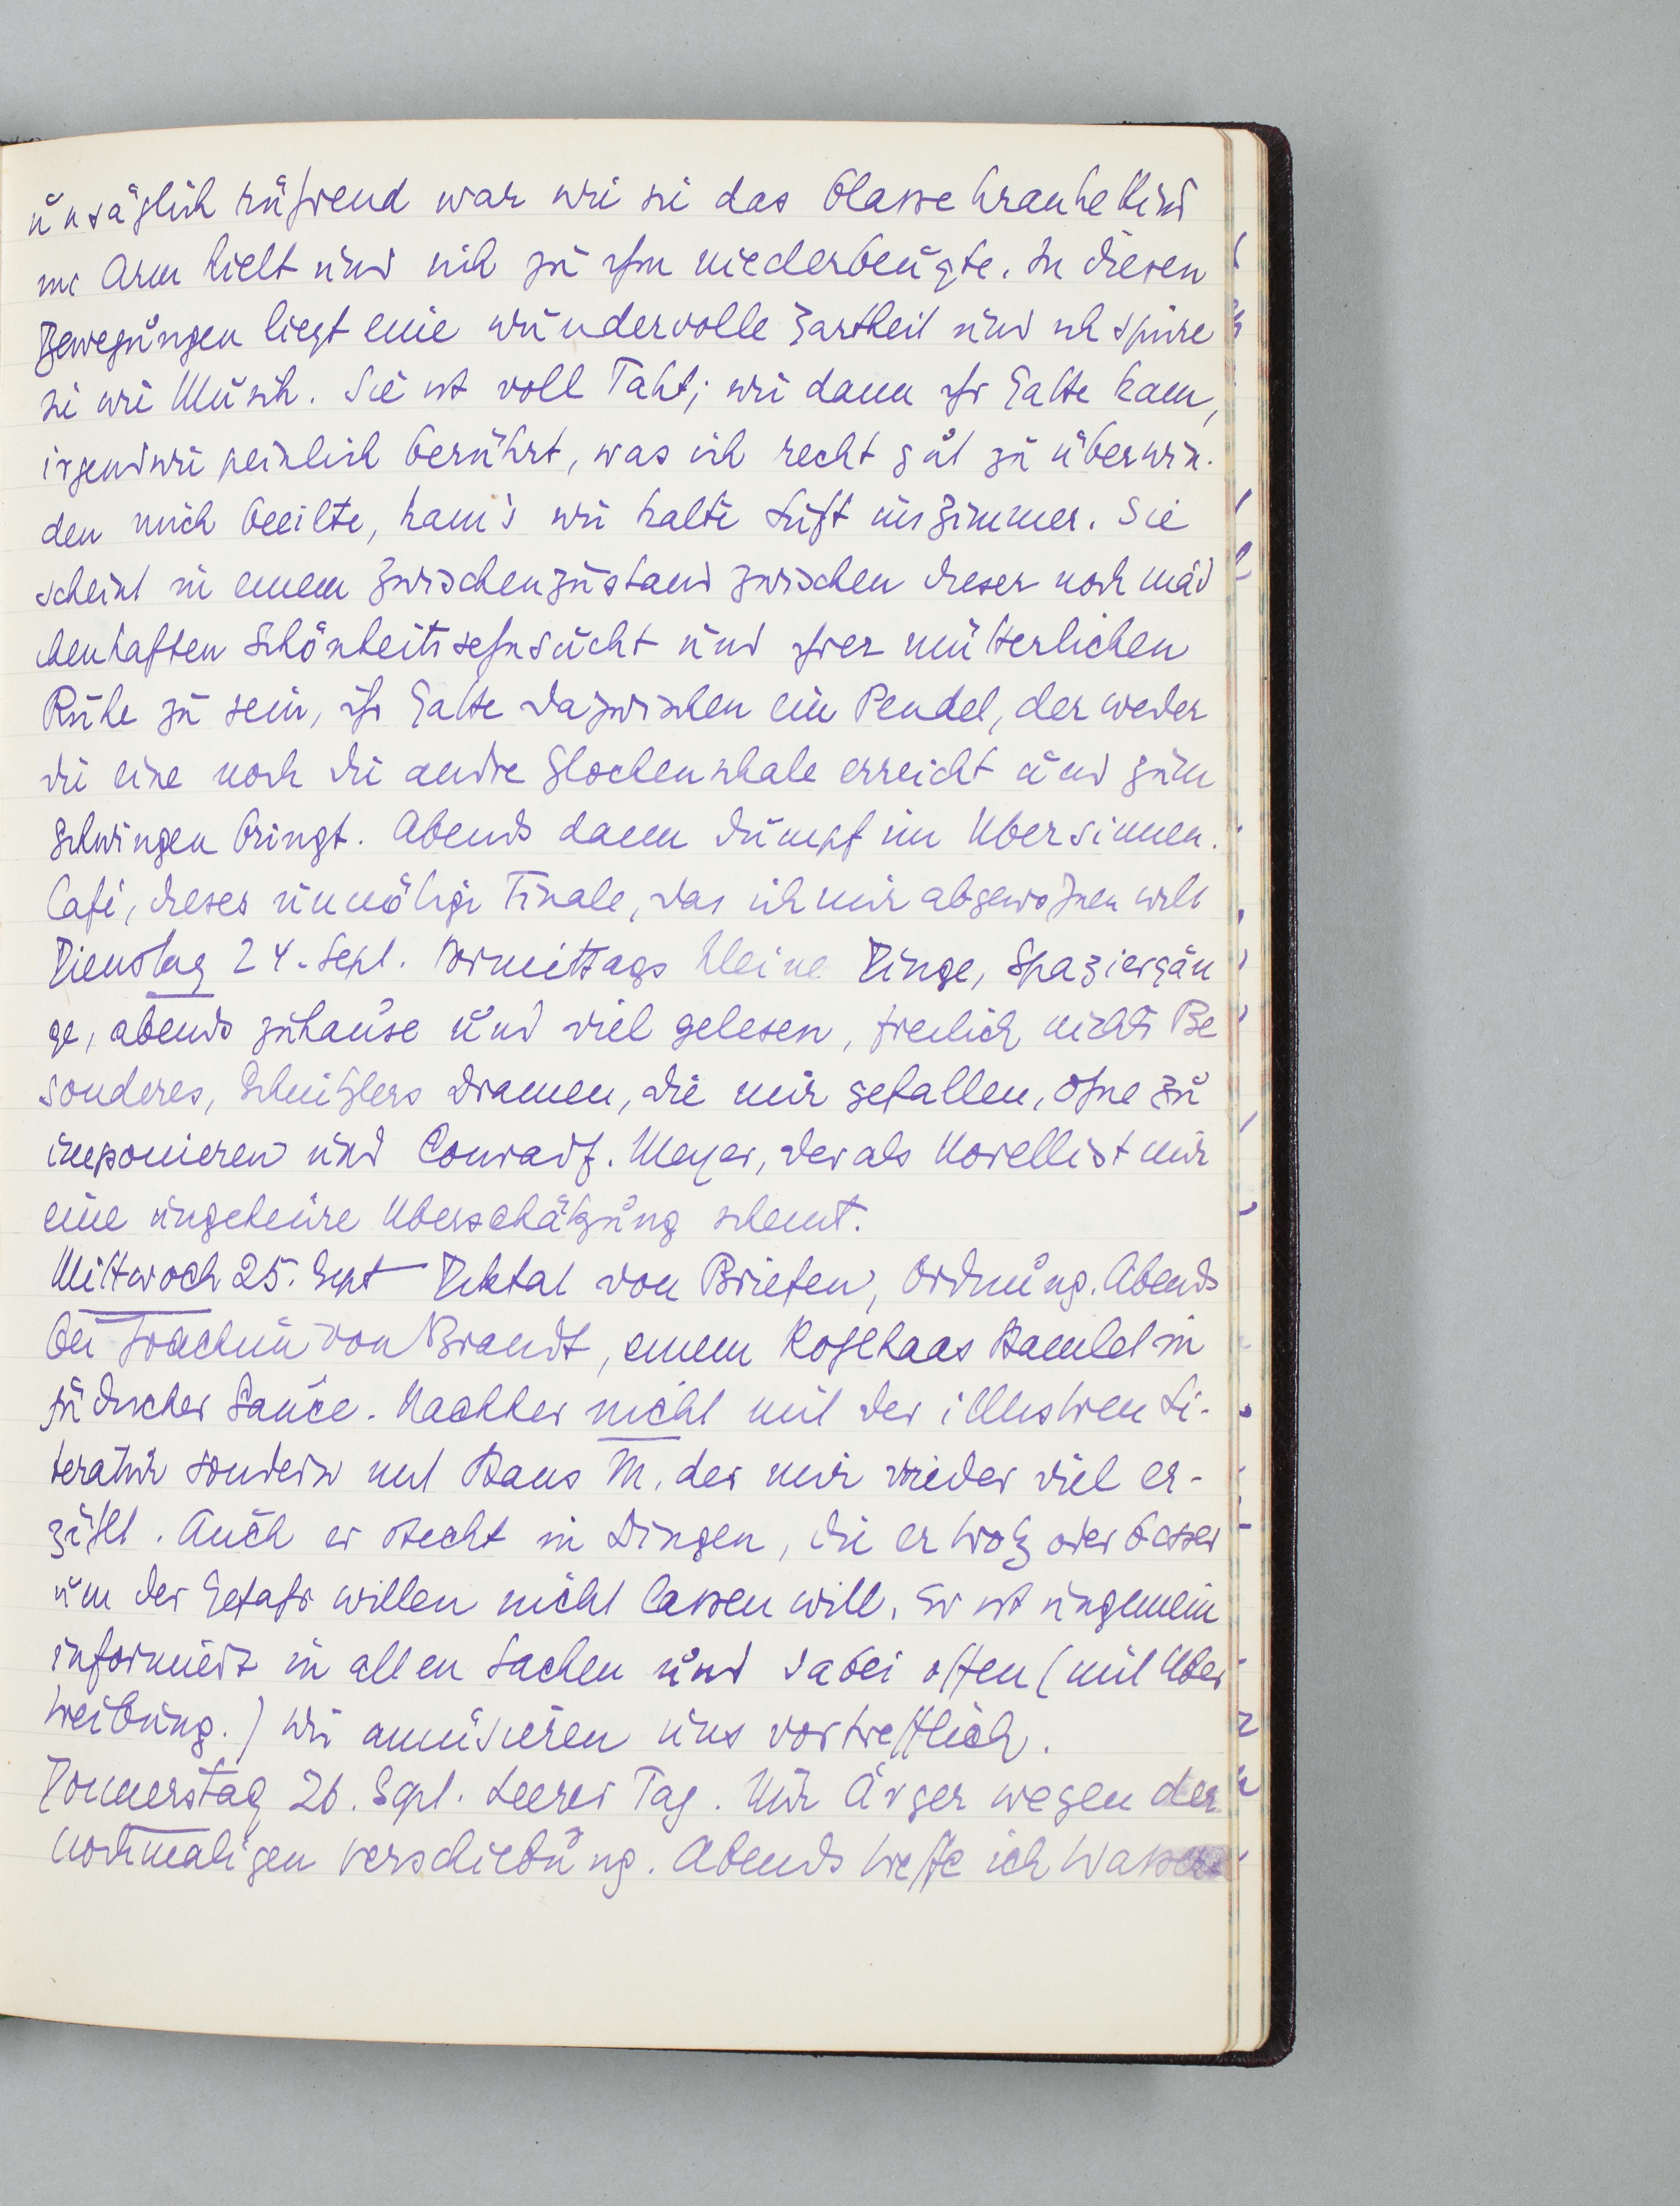 unsäglich rührend war wie sie das blasse kranke Kind
im Arm hielt und sich zu ihm niederbeugte. In diesen
Bewegungen liegt eine wundervolle Zartheit und ich spüre
sie wie Musik. Sie ist voll Takt; wie dann ihr Gatte kam,
irgendwie peinlich berührt, was ich recht gut zu überwin-
den mich beeilte, kam's wie kalte Luft ins Zimmer. Sie
scheint in einem Zwischenzustand zwischen dieser noch mäd
chenhaften Schönheitssehnsucht und ihrer mütterlichen
Ruhe zu sein, ihr Gatte dazwischen ein Pendel, der weder
die eine noch die andre Glockenschale erreicht und zum
Schwingen bringt. Abends dann dumpf im Übersinnen.
Café, dieses unnötige Finale, das ich mir abgewöhnen will
Dienstag 24. Sept. Vormittags kleine Dinge, Spaziergän
ge, abends zuhause und viel gelesen, freilich nichts Be
sonderes, Schnitzlers Dramen, die mir gefallen, ohne zu
imponieren und Conrad F. Meyer, der als Novellist mir
eine ungeheure Überschätzung scheint.
Mittwoch 25. Sept Diktat von Briefen, Ordnung. Abends
bei Joachim von Brandt, einem Kohlhaas Hamlet in
jüdischer Sauce. Nachher nicht mit der illustren Li-
teratur sondern mit Hans M. der mir wieder viel er-
zählt. Auch er steckt in Dingen, die er trotz oder besser
um der Gefahr willen nicht lassen will. Er ist ungemein
informiert in allen Sachen und dabei offen (mit Über
treibung.) Wir amüsieren uns vortrefflich.
Donnerstag 26. Sept. Leerer Tag. Nur Ärger wegen der
nochmaligen Verschiebung. Abends treffe ich Wasser